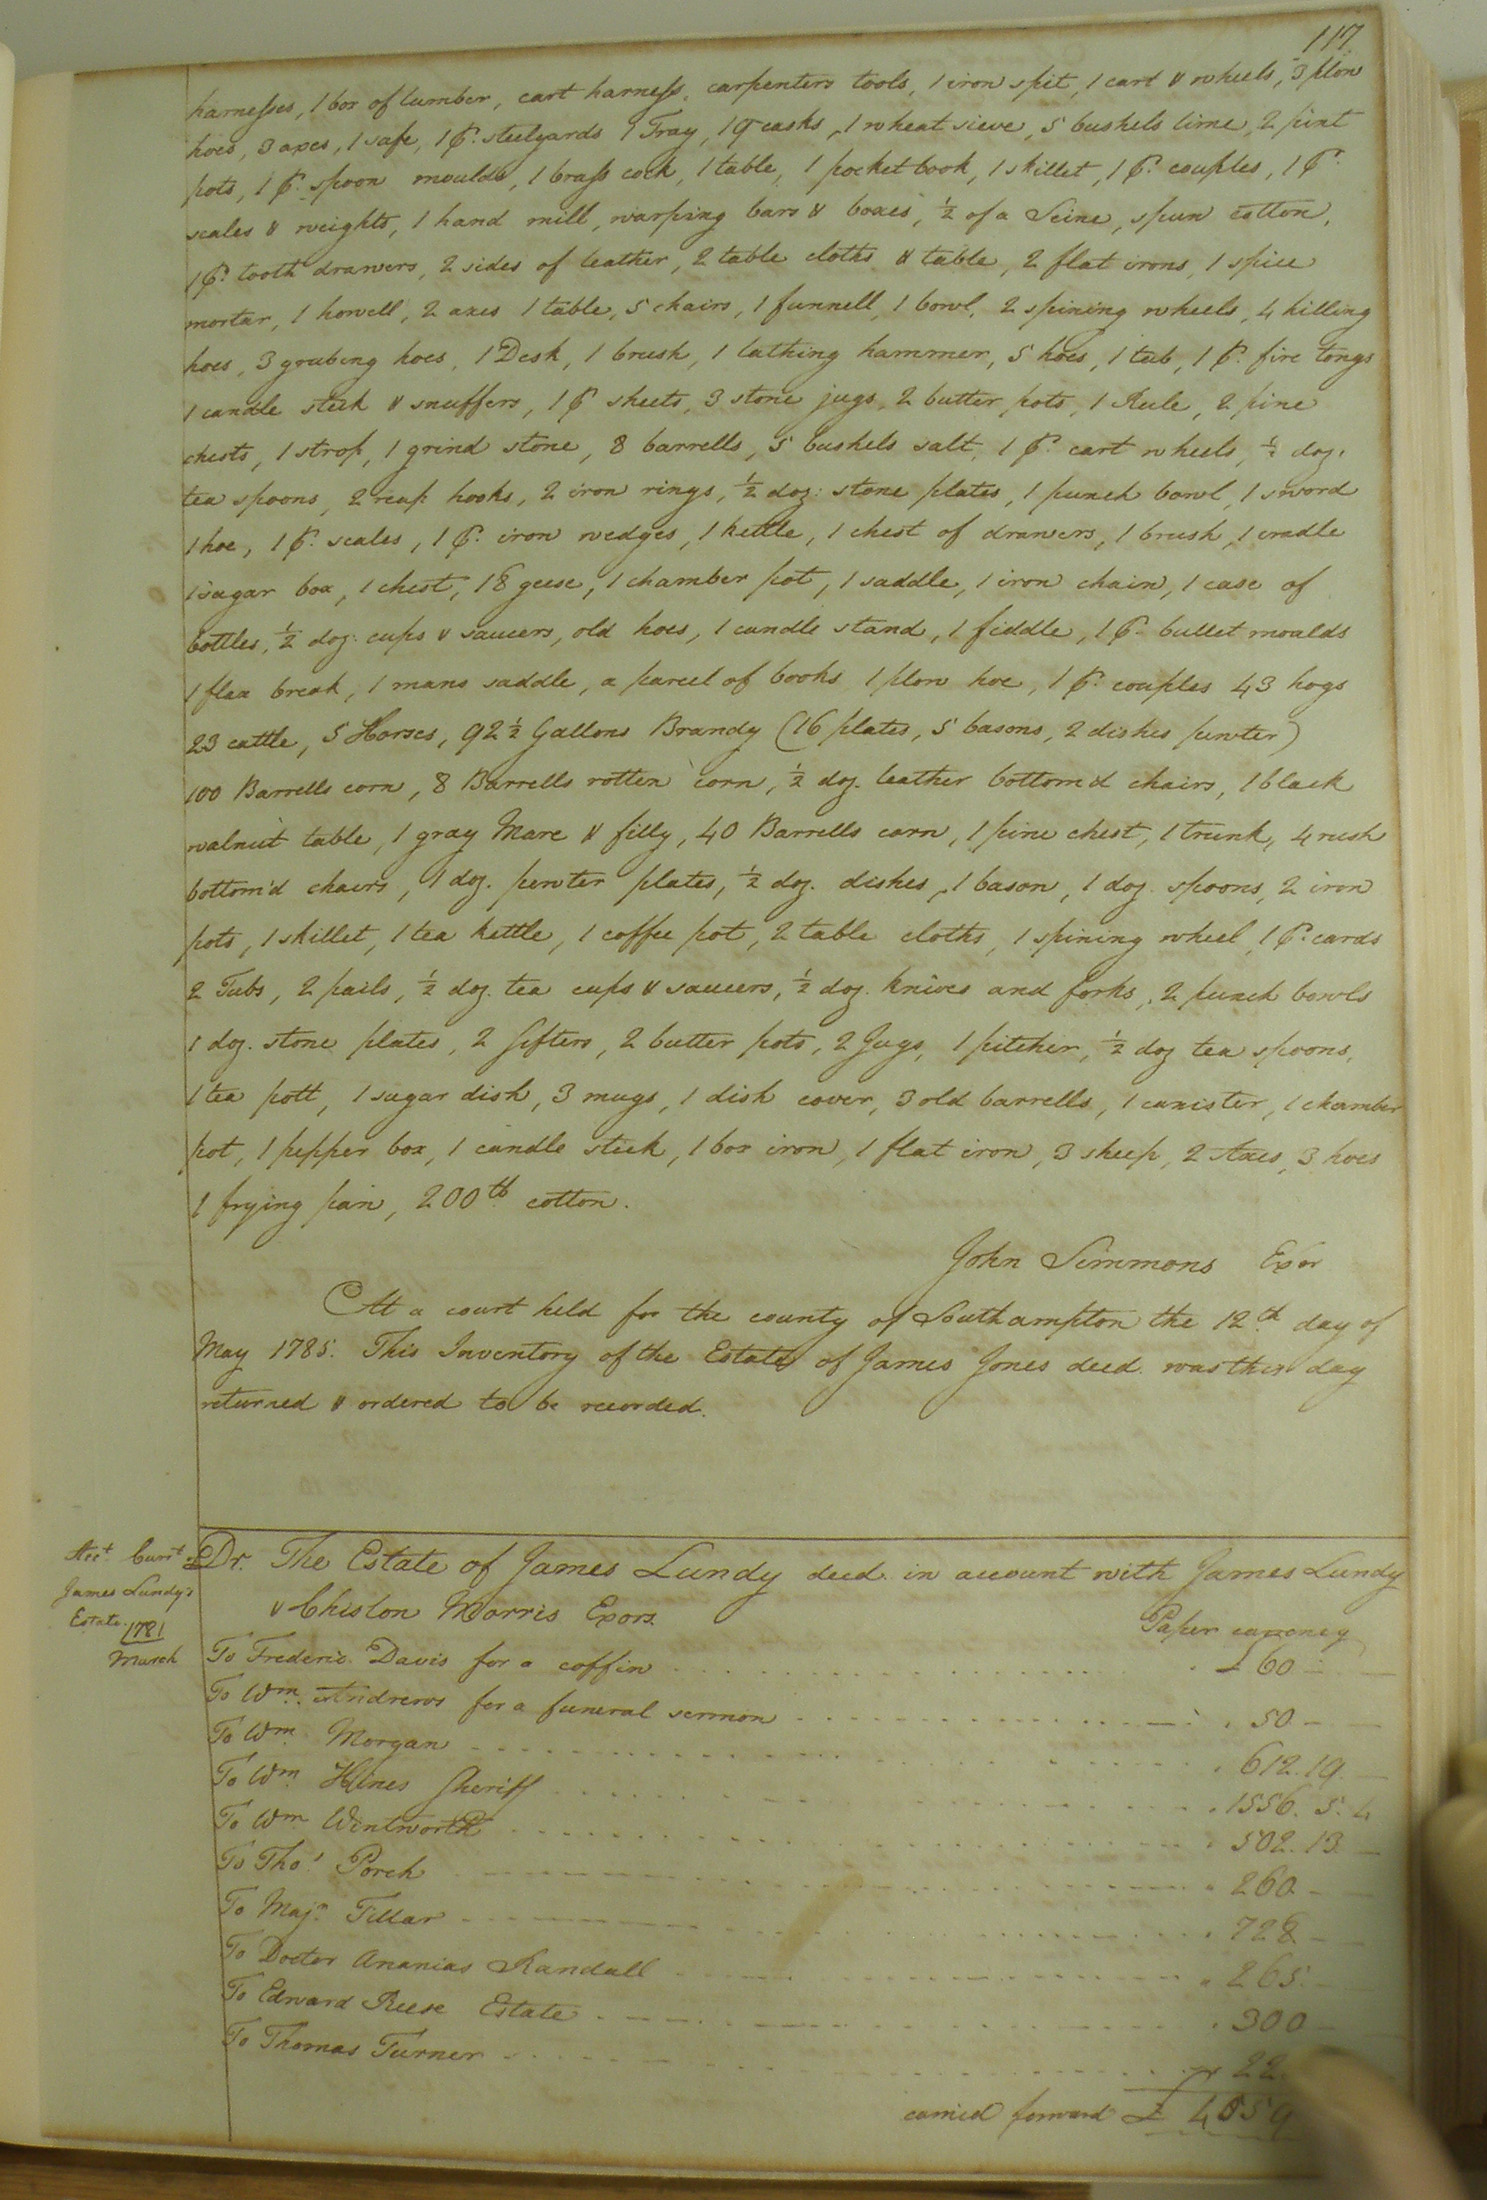 117
harnesses, 1 box of lumber, cart harness, carpenters tools, 1 iron spit, 1 cart & wheels, 3 plow
hoes, 3 axes, 1 safe, 1 pr. steelyards 1 Tray, 19 casks, 1 wheat sieve, 5 bushels lime, 2 pint
pots, 1 pr. spoon moulds, 1 brass cock, 1 table, 1 pocket book, 1 skillet, 1 pr. couples, 1 pr.
scales & weights, 1 hand mill, warping bars & boxes, ½ of a Seine, spun cotton,
1 pr. tooth drawers, 2 sides of leather, 2 table cloths & table, 2 flat irons, 1 spice
mortar, 1 howell, 2 axes 1 table, 5 chairs, 1 funnell, 1 bowl, 2 spining wheels, 4 hilling
hoes, 3 grubing hoes, 1 Desk, 1 brush, 1 lathing hammer, 5 hoes, 1 tub, 1 pr. fire tongs
1 candle stick & snuffers, 1 pr sheets, 3 stone jugs, 2 butter pots, 1 Rule, 2 pine
chests, 1 strop, 1 grind stone, 8 barrells, 5 bushels salt, 1 pr. cart wheels, ½ doz.
tea spoons, 2 reap hooks, 2 iron rings, ½ doz: stone plates, 1 punch bowl, 1 sword
1 hoe, 1 pr. scales, 1 pr. iron wedges, 1 kettle, 1 chest of drawers, 1 brush, 1 cradle
1 sugar box, 1 chest, 18 geese, 1 chamber pot, 1 saddle, 1 iron chain, 1 case of
bottles, ½ doz: cups & saucers, old hoes, 1 candle stand, 1 fiddle, 1 pr. bullet moulds
1 flax break, 1 mans saddle, a parcel of books 1 plow hoe, 1 pr. couples 43 hogs
23 cattle, 5 Horses, 92½ Gallons Brandy (16 plates, 5 basons, 2 dishes pewter)
100 Barrells corn, 8 Barrells rotten corn, ½ doz. leather bottom'd chairs, 1 black
walnut table, 1 gray Mare & filly, 40 Barrells corn, 1 pine chest, 1 trunk, 4 rush
bottom'd chairs, 1 doz. pewter plates, ½ doz. dishes, 1 bason, 1 doz. spoons, 2 iron
pots, 1 skillet, 1 tea kettle, 1 coffee pot, 2 table cloths, 1 spining wheel, 1 pr. cards
2 Tubs, 2 pails, ½ doz. tea cups & saucers, ½ doz. knives and forks, 2 punch bowls
1 doz. stone plates, 2 sifters, 2 butter pots, 2 Jugs, 1 pitcher, ½ doz tea spoons,
1 tea pott, 1 sugar dish, 3 mugs, 1 dish cover, 3 old barrells, 1 canister, 1 chamber
pot, 1 pepper box, 1 candle stick, 1 box iron, 1 flat iron, 3 sheep, 2 Axes, 3 hoes
1 frying pan, 200 lb cotton.
John Simmons Exor
At a court held for the county of Southampton the 12th day of
May 1785. This Inventory of the Estate of James Jones decd. was this day
returned & ordered to be recorded.
Acct. Currt.
James Lundy's
Estate.
1781
March
Dr. The Estate of James Lundy decd. in account with James Lundy
& Chislon Morris Exors.
Paper currency
To Frederic Davis for a coffin £60
To Wm. Andrews for a funeral sermon 50
To Wm. Morgan 612.19
To Wm Hines Sheriff 1556.5.4
To Wm Wentworth 502.13
To Thos. Porch 260
To Majr. Tillar 728
To Doctor Ananias Randall 265
To Edward Reese Estate 300
To Thomas Turner 22
carried forward £ 4859